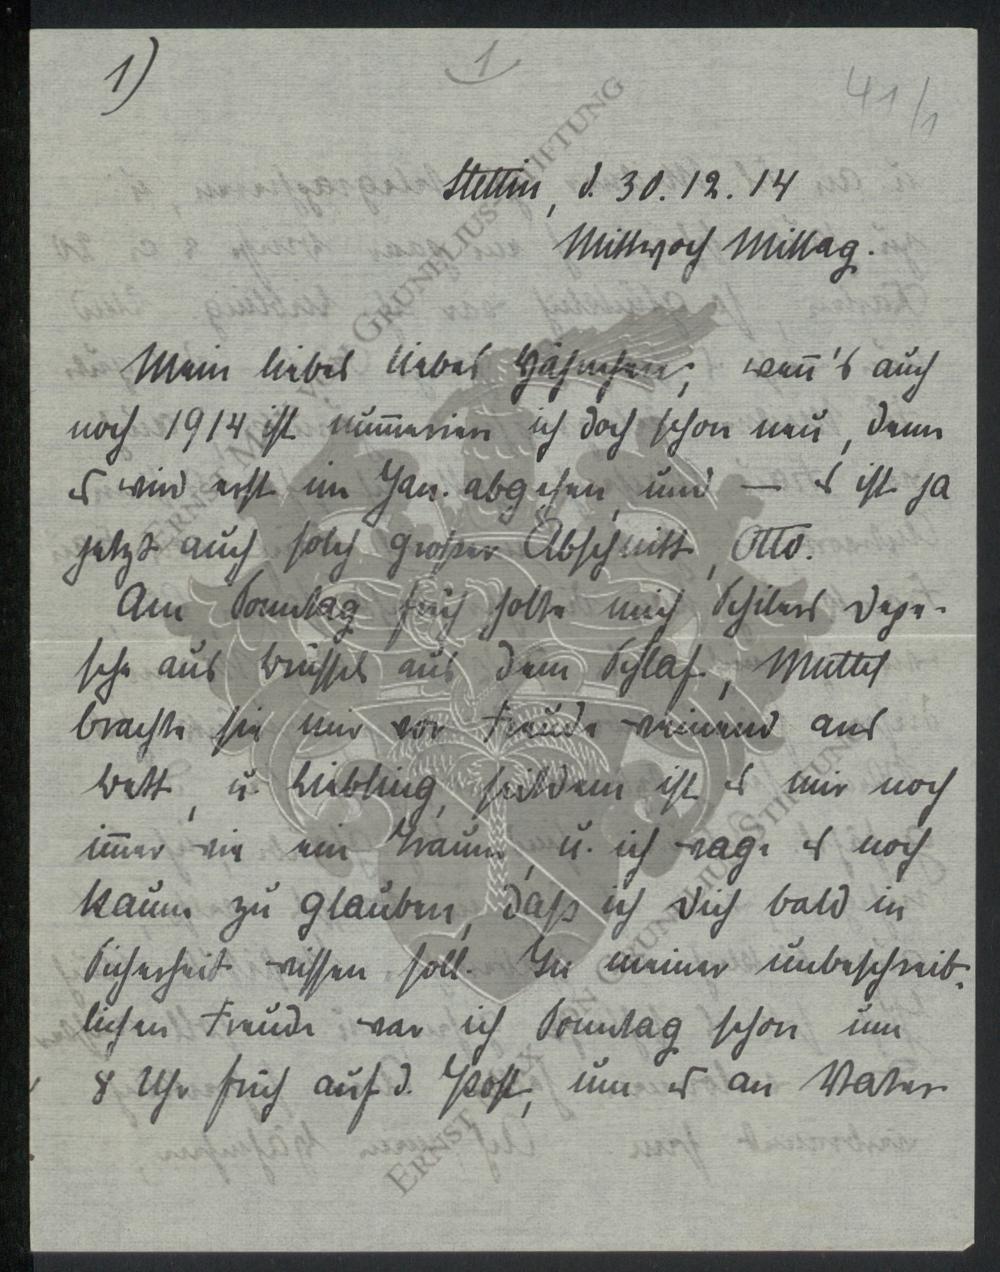 1)
1
41/1
Stettin, d. 30.12.14
Mittwoch Mittag.
Mein liebes liebes Hähnchen, wenn's auch
noch 1914 ist nummerier ich doch schon neu, denn
es wird erst im Jan. abgehen, und — es ist ja
jetzt auch solch großer Abschnitt, Otto.
Am Sonntag früh holte mich Schilers Depe-
sche aus Brüssel aus dem Schlaf, Muttel
brachte sie mir vor Freude weinend ans
Bett, u. Liebling, seitdem ist es mir noch
immer wie ein Traum, u. ich wage es noch
kaum zu glauben, daß ich Dich bald in
Sicherheit wissen soll. In meiner unbeschreib-
lichen Freude war ich Sonntag schon um
8 Uhr früh auf d. Post, um es an Vater
ERNST MAX VON GRUNELIUS-STIFTUNG
ERNST MAX VON GRUNELIUS-STIFTUNG